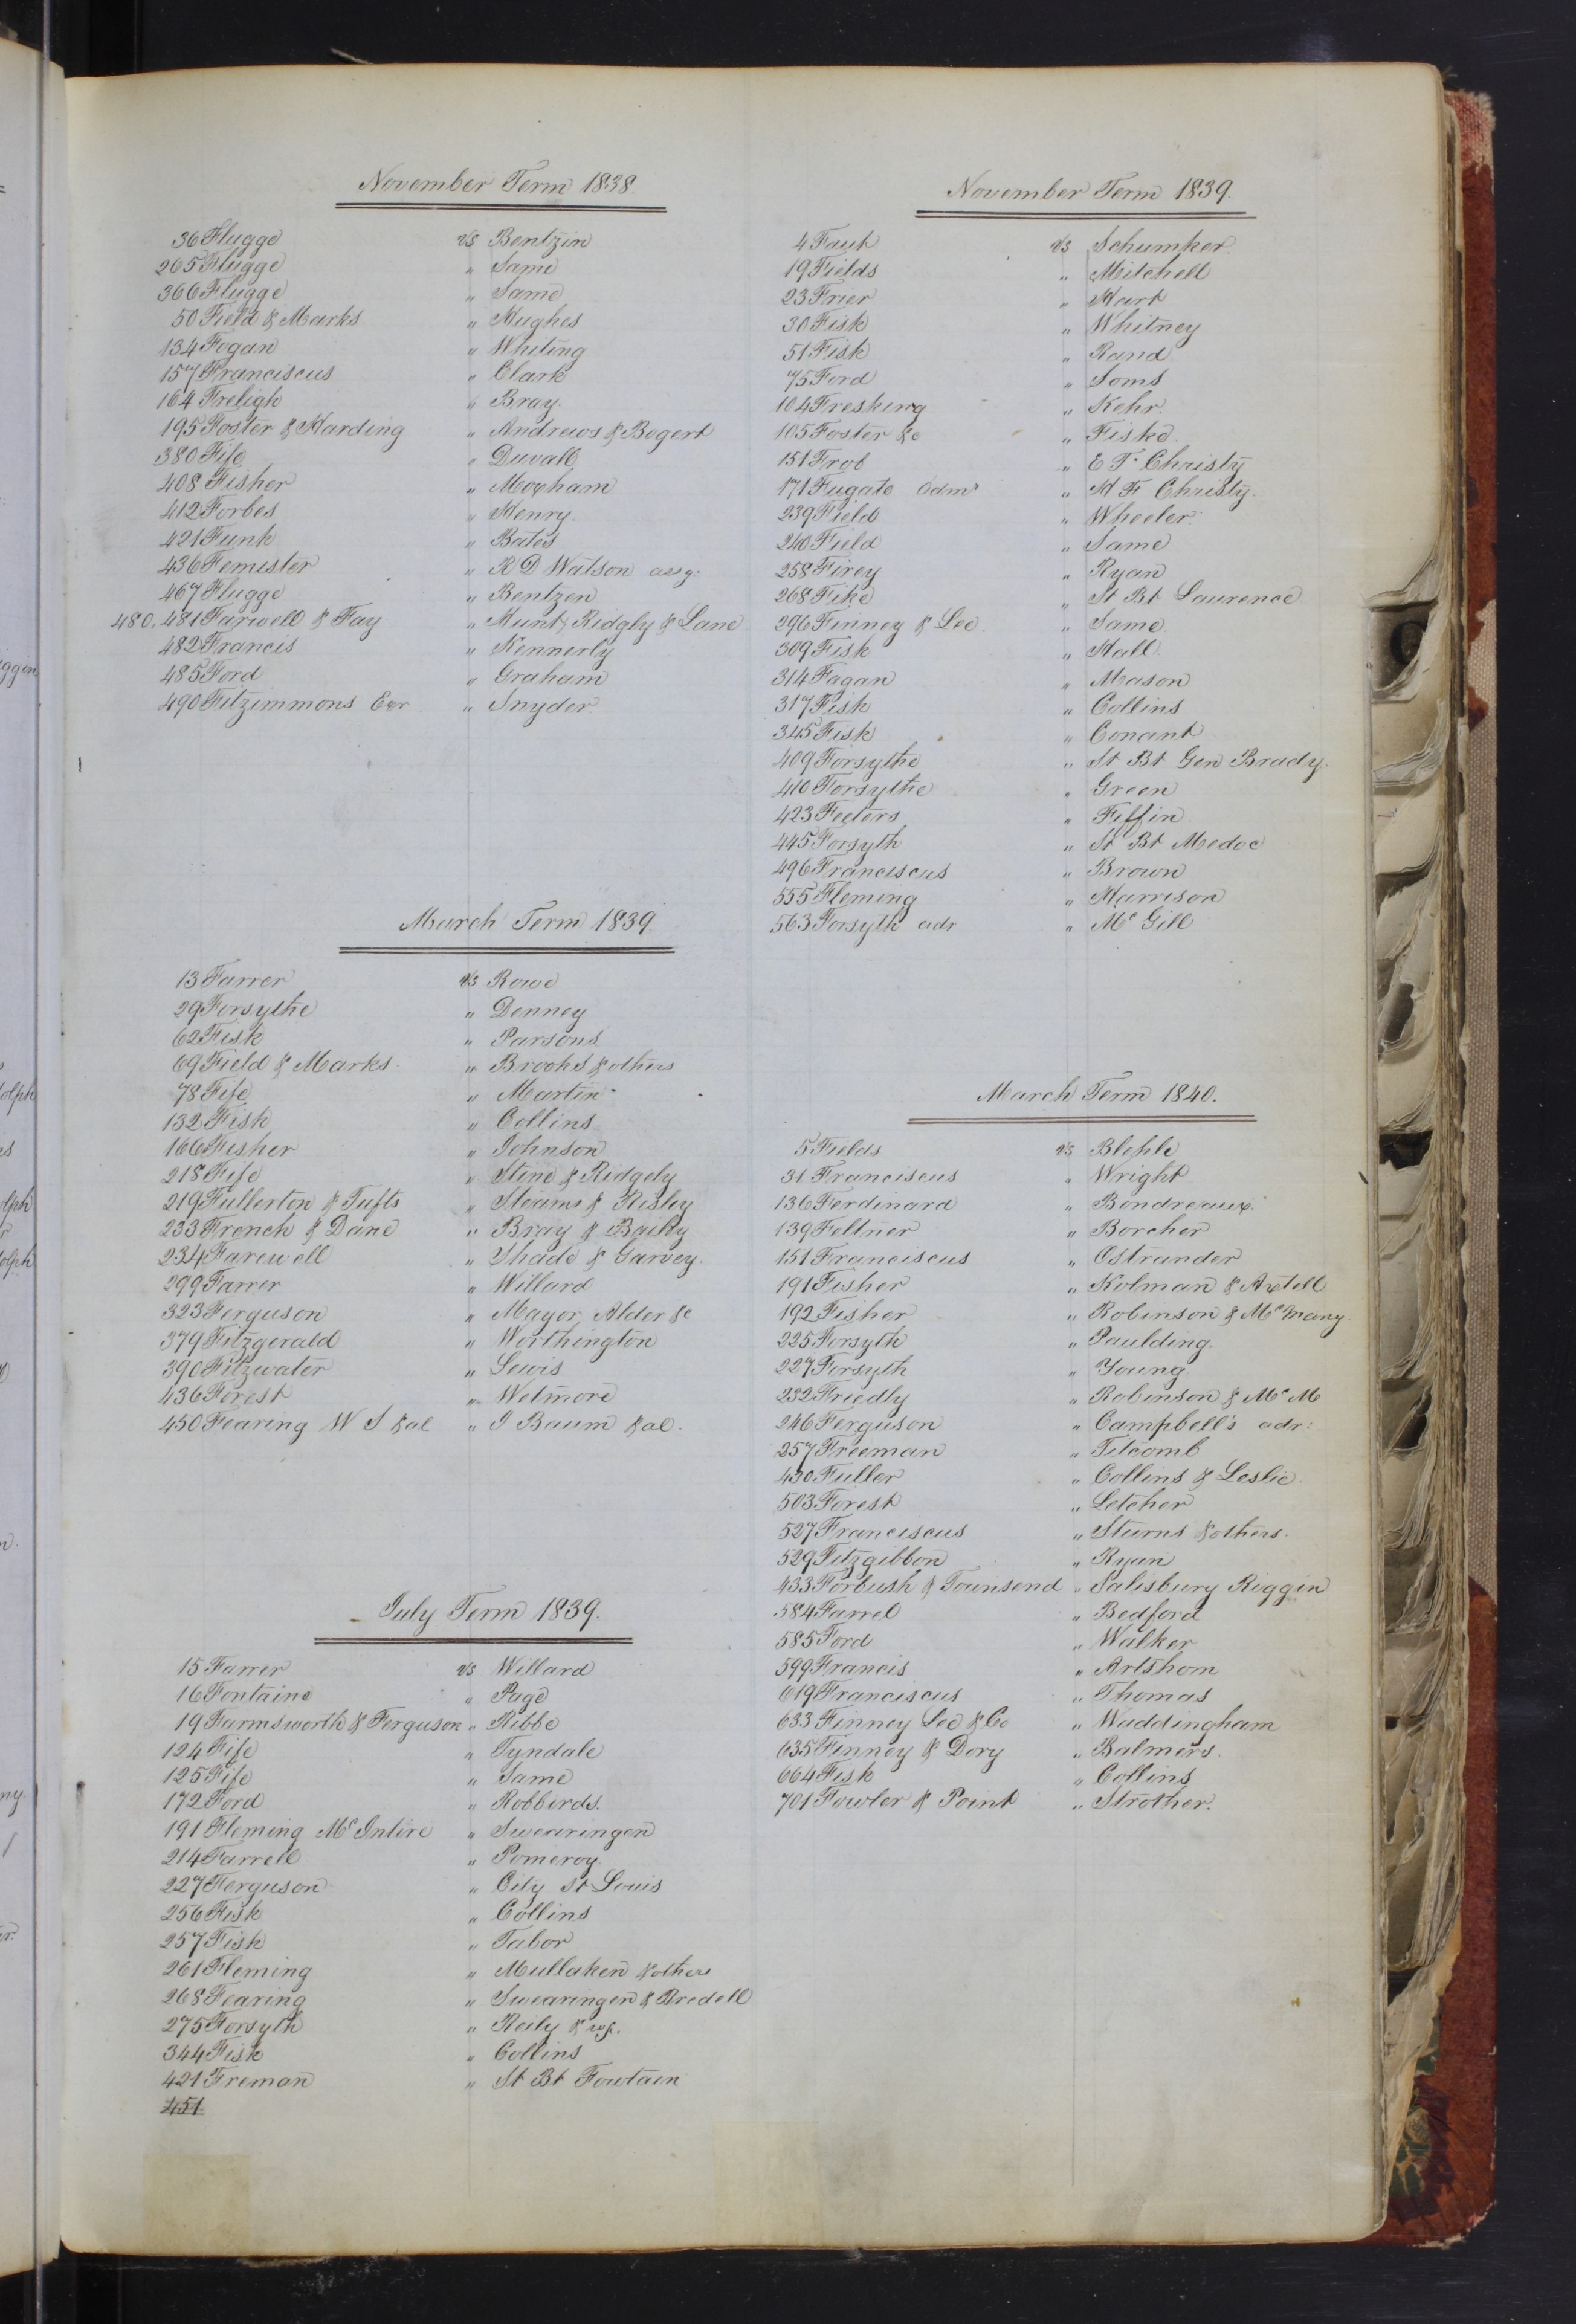 November Term 1838.
36 Flugge vs Bentzin
265 Flugge " Same
366 Flugge " Same
50 Field & Marks " Hughes
134 Fogan " Whiting
157 Franciscus " Clark
164 Freligh " Bray.
195 Foster & Harding " Andrews & Bogert
380 Fife " Duvall
408 Fisher " Moxham
412 Forbes " Henry.
421 Funk " Bates
436 Femister " R D Watson assg:
467 Flugge " Bentzen
480. 481 Farwell & Fay " Hunt, Ridgly & Lane
482 Francis " Kennerly
485 Ford " Graham
490 Fitzimmons Exr " Snyder.
March Term 1839.
13 Farrer vs Rowe
29 Forsythe " Denney
62 Fisk " Parsons
69 Field & Marks. " Brooks & others
78 Fife " Martin
132 Fisk " Collins.
166 Fisher " Johnson
218 Fife " Stine & Ridgely
219 Fullerton & Tufts " Stearns & Risley
233 French & Dane " Bray & Baily
234 Farewell " Shade & Garvey.
299 Farrer " Willard
323 Ferguson " Mayor, Alder &c
379 Fitzgerald " Worthington
390 Fitzwater " Lewis
436 Forest " Wetmore
450 Fearing W S & al " I Baum & al.
July Term 1839.
15 Farrer vs Willard
16 Fontaine " Page
19 Farmsworth & Ferguson " Ribbe
124 Fife " Tyndale
125 Fife " Same
172 Ford " Robbirds.
191 Fleming McIntire " Swearingen
214 Farrell " Pomeroy
227 Ferguson " City St Louis
256 Fisk " Collins
257 Fisk " Tabor
261 Fleming " Mullaken & others
268 Fearing " Swearingen & Bredell
275 Forsyth " Reily & wf.
344 Fisk " Collins
421 Freman " St Bt Fowtain
451
November Term 1839.
4 Faut vs Schumker.
19 Fields " Mitchell
23 Frier " Hart
30 Fisk " Whitney
51 Fisk " Rand
75 Ford " Soms
104 Fresking " Kehr.
105 Foster &c " Fiske.
151 Frot " E T. Christy
171 Fugate Admr " H F Christy.
239 Field " Wheeler
240 Field " Same
258 Firey " Ryan
268 Fike " St Bt Laurence
296 Finney & Lee " Same.
309 Fisk " Hall.
314 Fagan " Mason
317 Fisk " Collins
345 Fisk " Conant
409 Forsythe " St Bt Gen Brady.
410 Forsythe " Green
423 Feeters " Fiffin
445 Forsyth " St Bt Medoc
496 Franciscus " Brown
555 Fleming " Harrison
563 Forsyth adr " McGill
March Term 1840.
5 Fields vs Blehle
31 Franciscus " Wright
136 Ferdinard " Bondreaux.
139 Feltner " Borcher
151 Franciscus " Ostrander
191 Fisher " Holman & Axtell
192 Fisher " Robinson & McMany.
225 Forsyth " Paulding.
227 Forsyth " Young.
232 Friedly " Robinson & McM
246 Ferguson " Campbell's adr:
257 Freeman " Titcomb
430 Fuller " Collins & Leslie.
503 Forest " Letcher
527 Franciscus " Sturns & others.
529 Fitzgibbon " Ryan
433 Forbush & Townsend " Salisbury Riggin
584 Farrel " Bedford
585 Ford " Walker
599 Francis " Artshom
619 Franciscus " Thomas
633 Finney Lee & Co " Waddingham
635 Finney & Dory " Balmers.
664 Fisk " Collins
701 Fowler & Point " Strother.